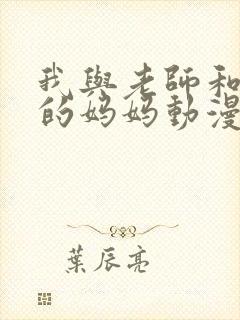 我與老師和
的媽媽動漫
葉辰亮